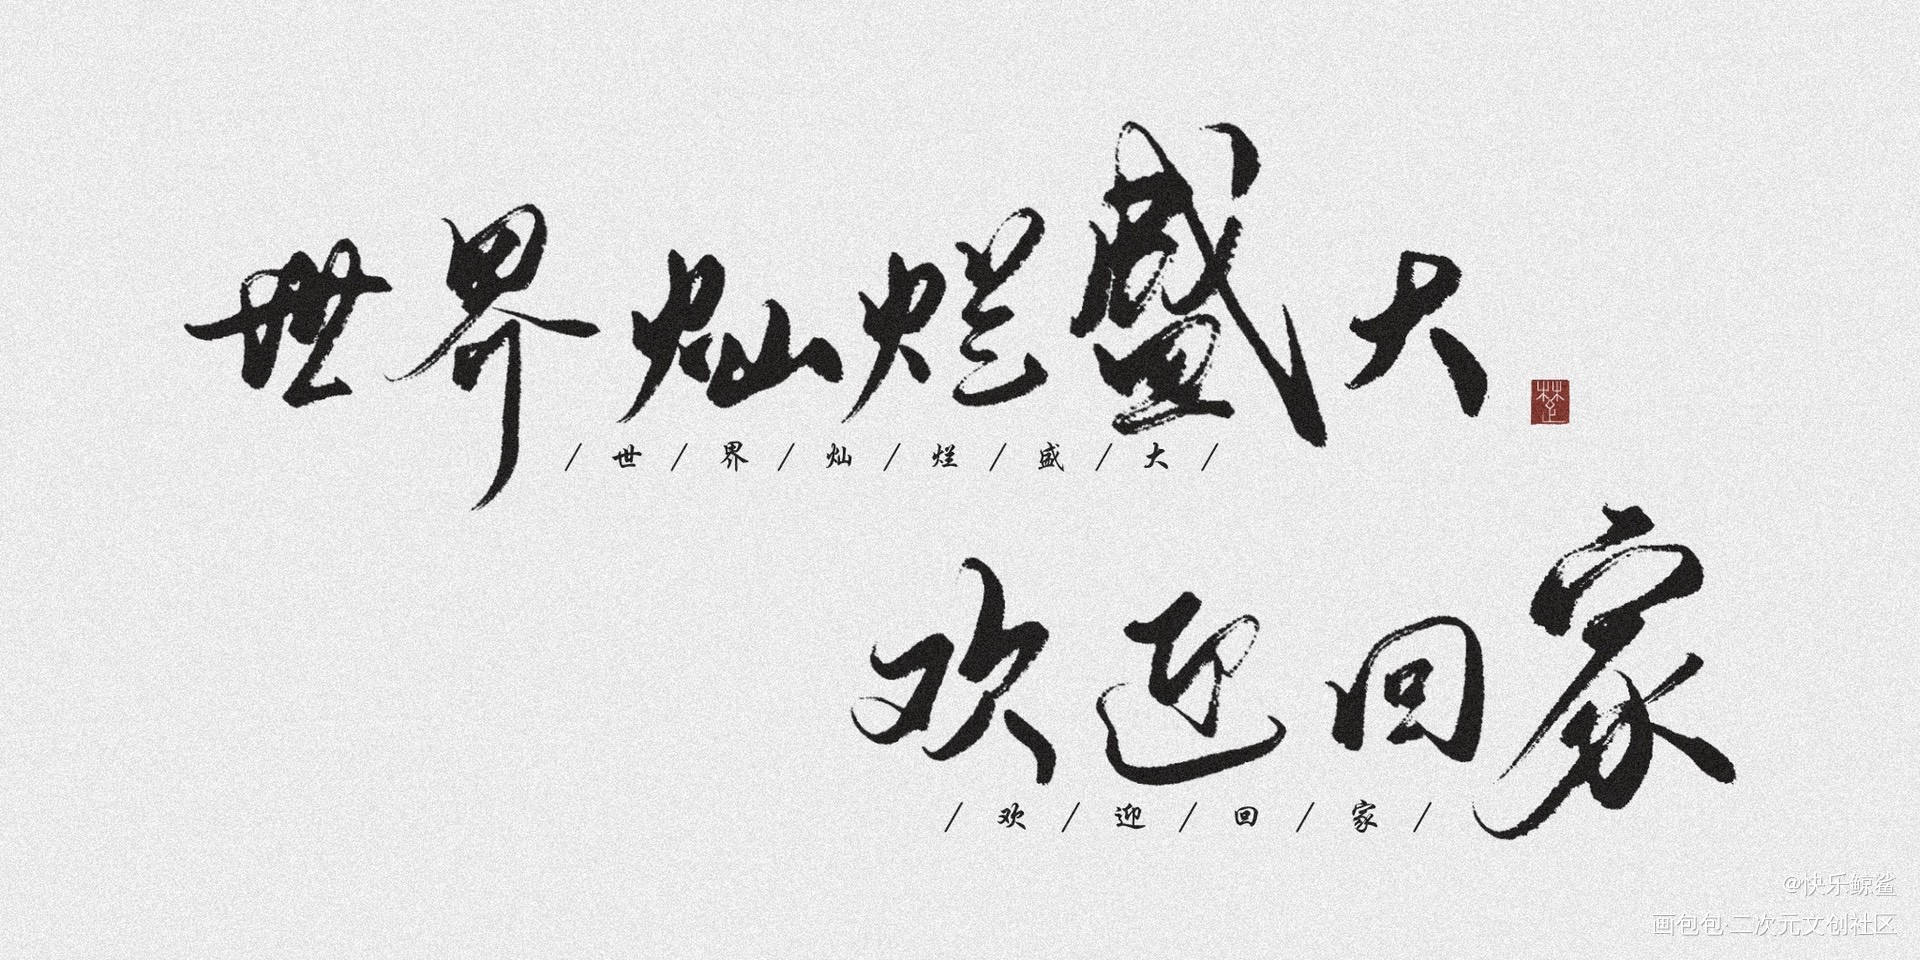 世界灿烂盛大
楚
/ 世 / 界 / 灿 / 烂 / 盛 / 大 /
欢迎回家
/ 欢 / 迎 / 回 / 家 /
@快乐鲸鲨
画包包·二次元文创社区